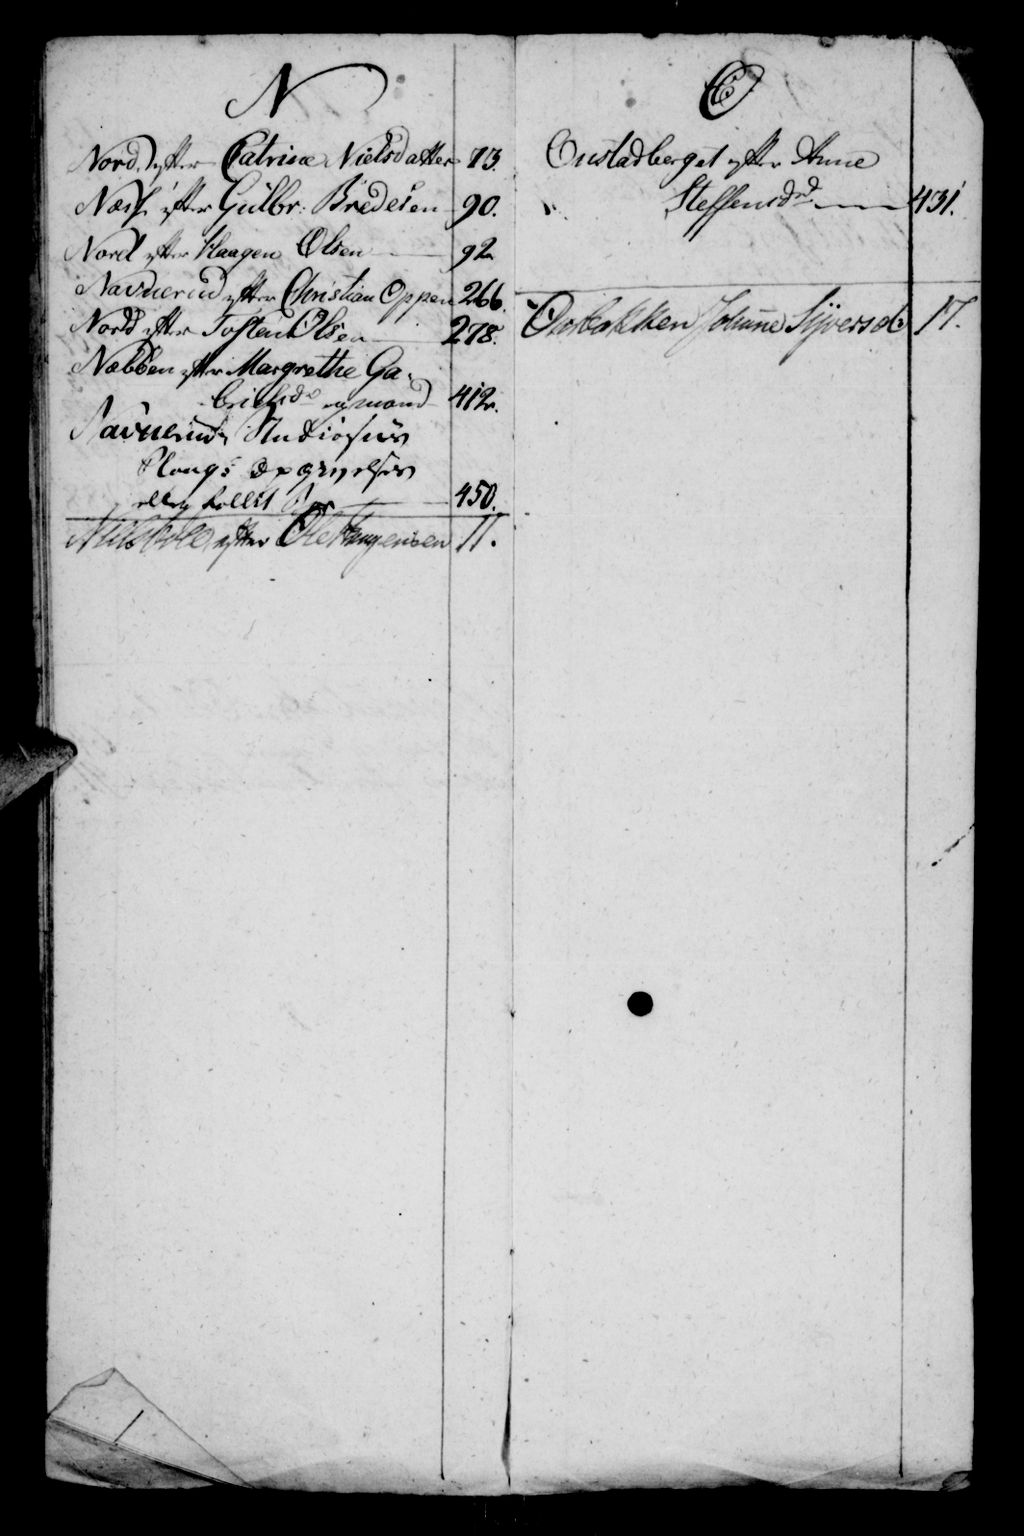 N
Nord. efter Catrine Nielsdatter 73.
Næss efter Gulbr: Bredesen 90.
Nord efter Haagen Olsen 92
Navnerud efter Christian Oppen 266.
Nord efter Tosten Olsen 278.
Næbben efter Margrethe Ga-
brielsdr og mand 412.
Navnerud Studiosus
450.
efter Ole Haugensen 11.
O
Onstadberget efter Anne
Steffensdr 431.
Onsbakken Johanne Syversd 17.
1